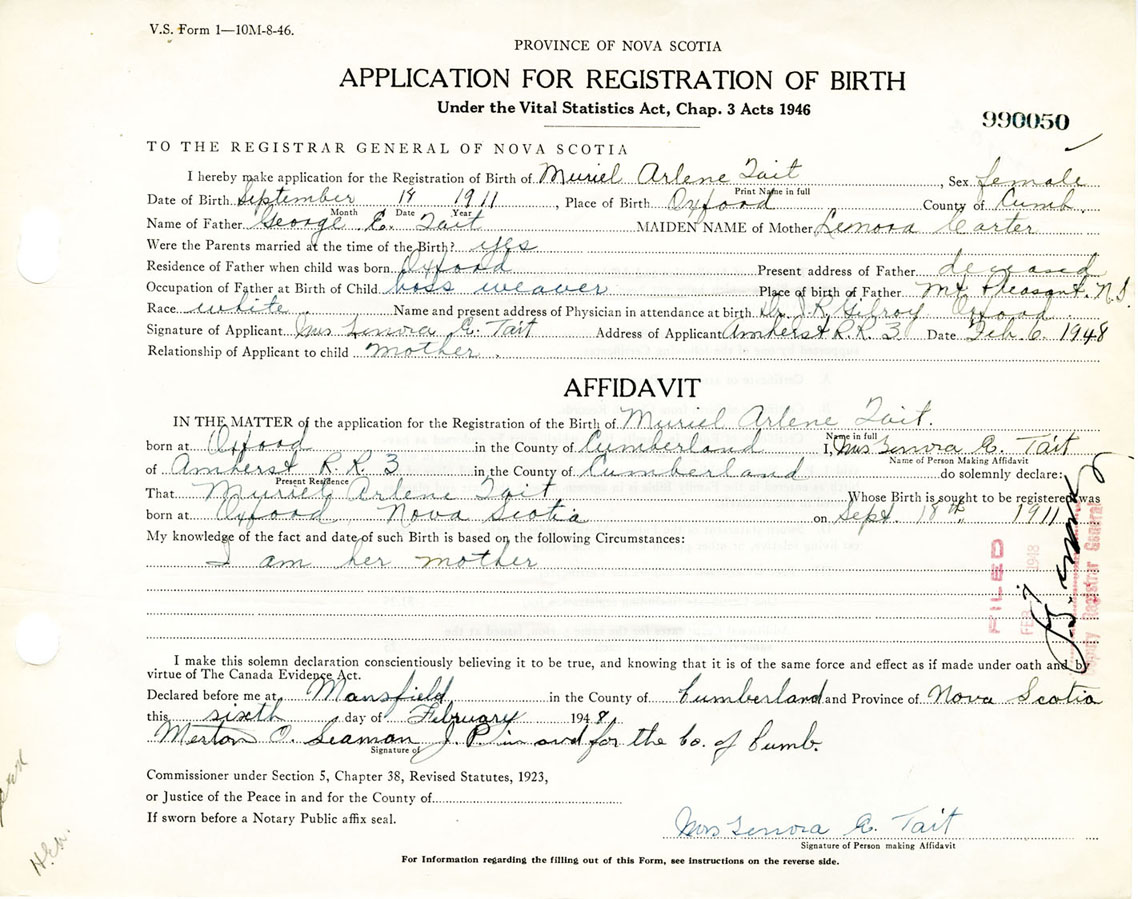 V.S. Form 1—10M-8-46.
PROVINCE OF NOVA SCOTIA
APPLICATION FOR REGISTRATION OF BIRTH
Under the Vital Statistics Act, Chap. 3 Acts 1946
990050
TO THE REGISTRAR GENERAL OF NOVA SCOTIA
I hereby make application for the Registration of Birth of Muriel Arlene Tait, Sex female
Print Name in full
Date of Birth September 18 1911, Place of Birth Oxford County of Cumb.
Month Date Year
Name of Father George E. Tait MAIDEN NAME of Mother Lenora Carter
Were the Parents married at the time of the Birth? yes
Residence of Father when child was born Oxford Present address of Father deceased
Occupation of Father at Birth of Child boss weaver Place of birth of Father Mt. Pleasant. N.S.
Race white Name and present address of Physician in attendance at birth Dr. J. R. Gilroy Oxford
Signature of Applicant Mrs Lenora E. Tait Address of Applicant Amherst R.R. 3 Date Feb. 6. 1948
Relationship of Applicant to child mother.
AFFIDAVIT
IN THE MATTER of the application for the Registration of the Birth of Muriel Arlene Tait.
Name in full
born at Oxford in the County of Cumberland I, Mrs Lenora E. Tait
Name of Person Making Affidavit
of Amherst R.R. 3 in the County of Cumberland do solemnly declare:
Present Residence
That Muriel Arlene Tait Whose Birth is sought to be registered was
born at Oxford, Nova Scotia on Sept. 18th, 1911
My knowledge of the fact and date of such Birth is based on the following Circumstances:
I am her mother
FILED
FEB 1948
Deputy Registrar General
I make this solemn declaration conscientiously believing it to be true, and knowing that it is of the same force and effect as if made under oath and by
virtue of The Canada Evidence Act.
Declared before me at Mansfield in the County of Cumberland and Province of Nova Scotia
this sixth day of February 1948.
Merton O. Seaman J.P. in and for the Co. of Cumb.
Signature of
Commissioner under Section 5, Chapter 38, Revised Statutes, 1923,
or Justice of the Peace in and for the County of
If sworn before a Notary Public affix seal.
Mrs Lenora E. Tait
Signature of Person making Affidavit
For Information regarding the filling out of this Form, see instructions on the reverse side.